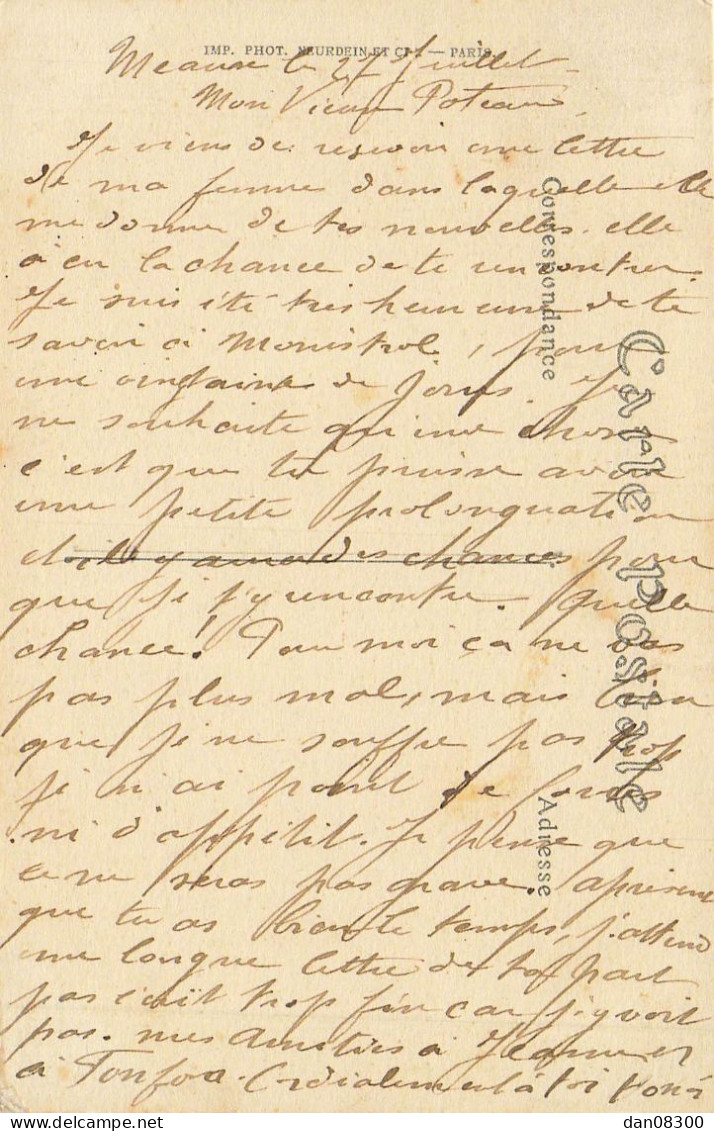 IMP. PHOT. NEURDEIN ET Cie — PARIS
Meaux le 27 Juillet
Mon Vieux Poteau,
Je viens de resevoir une lettre
de ma femme dans laquelle elle
me donne de tes nouvelles. elle
a eu la chance de te rencontrer.
Je suis été tres heureux de te
savoir a Monistrol, pour
une vingtaine de jours. Je
ne souhaite qu'une chose
c'est que tu puisse avoir
une petite prolonguation
des chances pour
que je t'y rencontre. Quelle
chance! Pour moi ça ne vas
pas plus mal, mais bien
que je ne souffre pas trop
je n'ai point de forces
ni d'appétit. Je pense que
ce ne seras pas grave. apresent
que tu as bien le temps, j'attend
une longue lettre de ta part
pas écrit trop fin car j'y voit
pas. mes Amitiés a Jeanne et
a Tonfou. Cordialement à toi
Correspondance
Carte postale
Adresse
dan08300